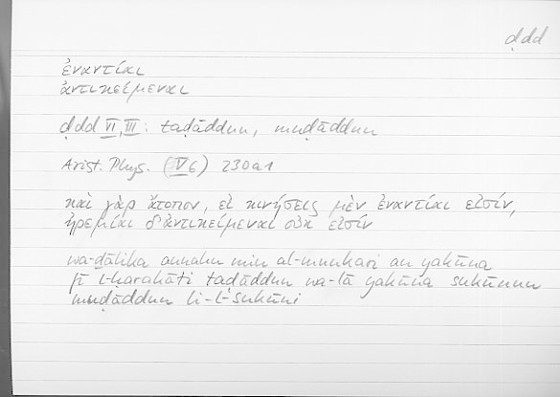 ḍdd
ἐναντίαι
ἀντικείμεναι
ḍdd VI, III: taḍāddun, muḍāddun
Arist. Phys. (V 6) 230a1
καὶ γὰρ ἄτοπον, εἰ κινήσεις μὲν ἐναντίαι εἰσίν,
ἠρεμίαι δ'ἀντικείμεναι οὐκ εἰσίν
wa-ḏālika annahu min al-munkari an yakūna
fī l-ḥarakāti taḍāddun wa-lā yakūna sukūnun
muḍāddun li-l-sukūni